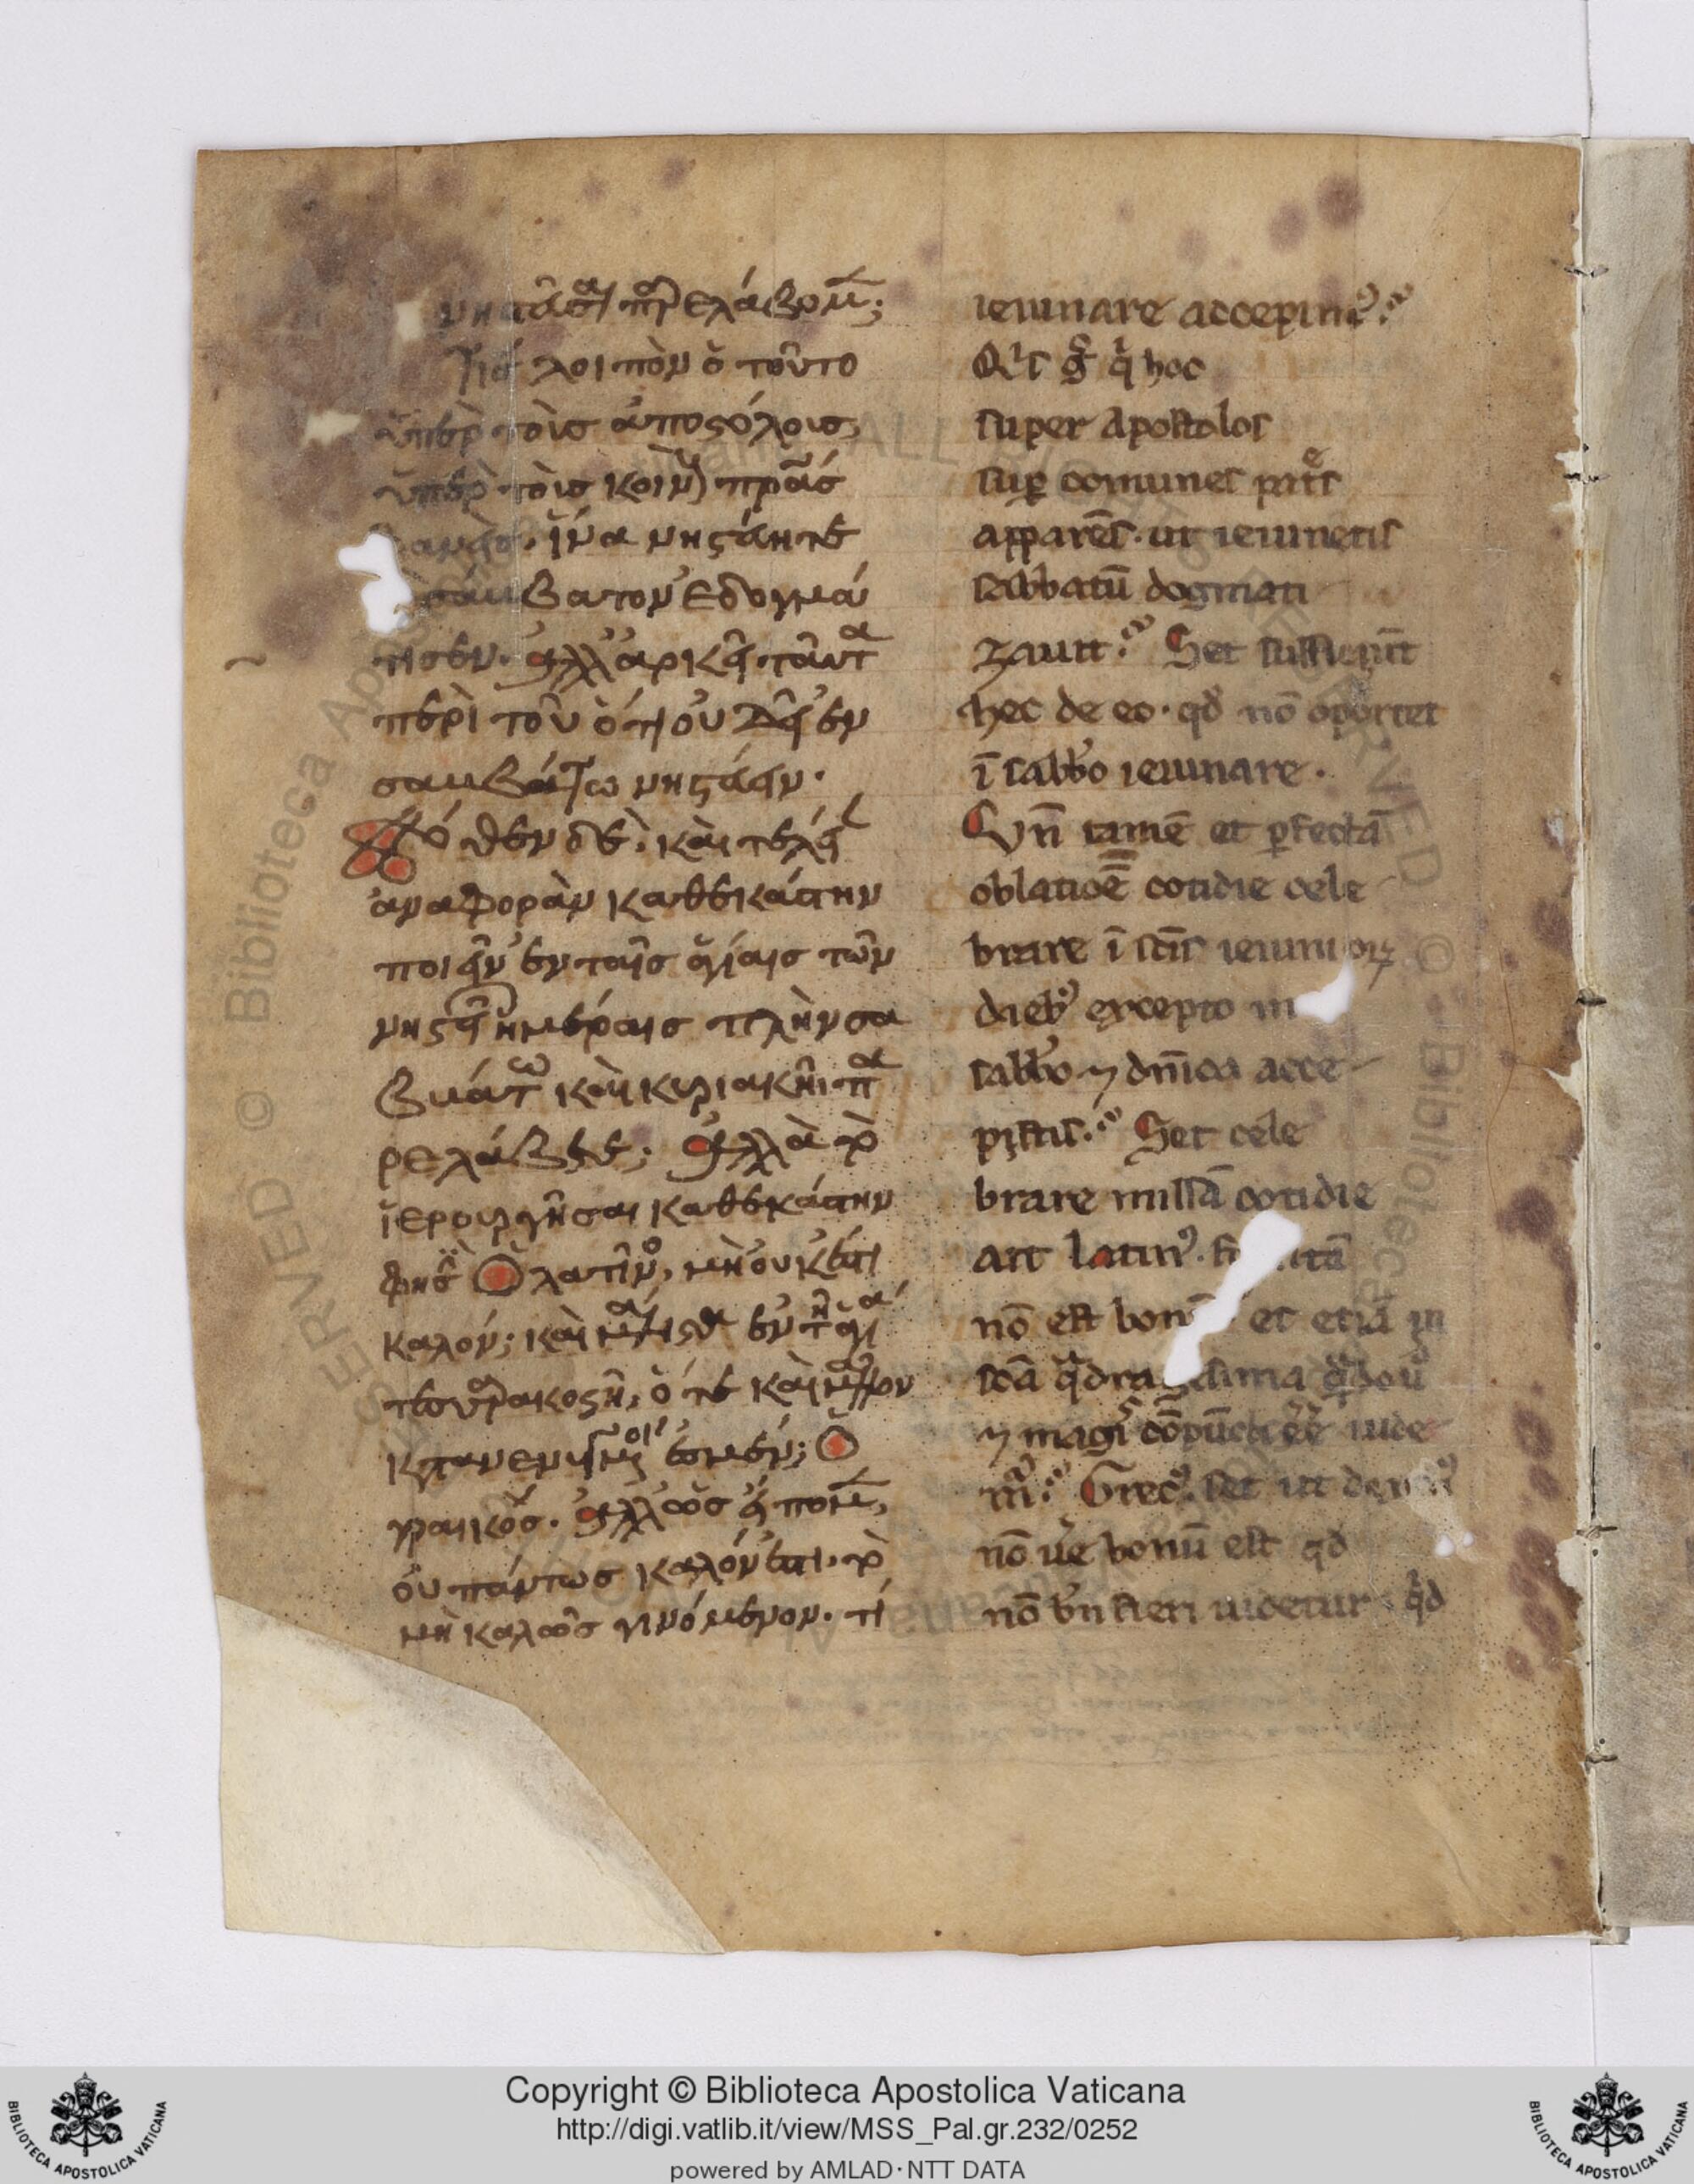 νηστᾶσαι παρελάβομεν;
Τίσ λοιπὸν ὁ τοῦτο
ὑπὲρ τοῖσ ἀποστόλοισ,
ὑπὲρ τοῖσ κοινοῖσ πράσ
ἵνα νηστάητε
σάμβατον ἐδογμά
τισεν. ἀλλ' ἀρκεῖ ταῦτα
περὶ τοῦ ὅτι οὐ δεῖ ἐν
σαμβάτω νηστάειν.
Πόθεν δὲ καὶ τελεί
ἀναφορὰν καθεκάστην
ποιεῖν ἐν ταῖσ ἁγίαισ τῶν
νηστειῶν ἡμέραισ πλὴν σα
βμάτω καὶ κυριακῆι πα
ρελάβετε; ἀλλὰ τὸ
ἱερουργῆσαι καθεκάστην
φησὶ Ὁ λατῖνοσ, μὴ οὐκ ἔστι
καλόν; καὶ μάλιστα ἐν τῆ ἁγία
τεσσαρακοστῆ, ὅτε καὶ μᾶλλον
κατανενυγμένοι ἐσμέν; Ὁ
γραικόσ. ἀλλ' ὡσ εἴπομεν,
οὐ πάντωσ καλόν ἐστι. τὸ
μὴ καλῶσ γινόμενον. τί
ieiunare accepimus?
Quis ergo qui hoc
super apostolos
super comunes patres
apparens. ut ieiunetis
sabbatum dogmati
zauit? Set sufficiunt
hec de eo. quod non oportet
in sabbato ieiunare.
Vnde tamen et perfectam
oblationem cotidie cele
brare in sanctis ieiuniorum
diebus excepto in
sabbato et dominica acce
pistis? Set cele
brare missam cotidie
ait latinus.
non est bonum et etiam in
sancta quadragesima quando
et magis compuncti esse uide
mur? Grecus. set ut
non uere bonum est quod
non bene fieri uidetur. quid
Copyright © Biblioteca Apostolica Vaticana
http://digi.vatlib.it/view/MSS_Pal.gr.232/0252
powered by AMLAD·NTT DATA
BIBLIOTECA APOSTOLICA VATICANA
BIBLIOTECA APOSTOLICA VATICANA